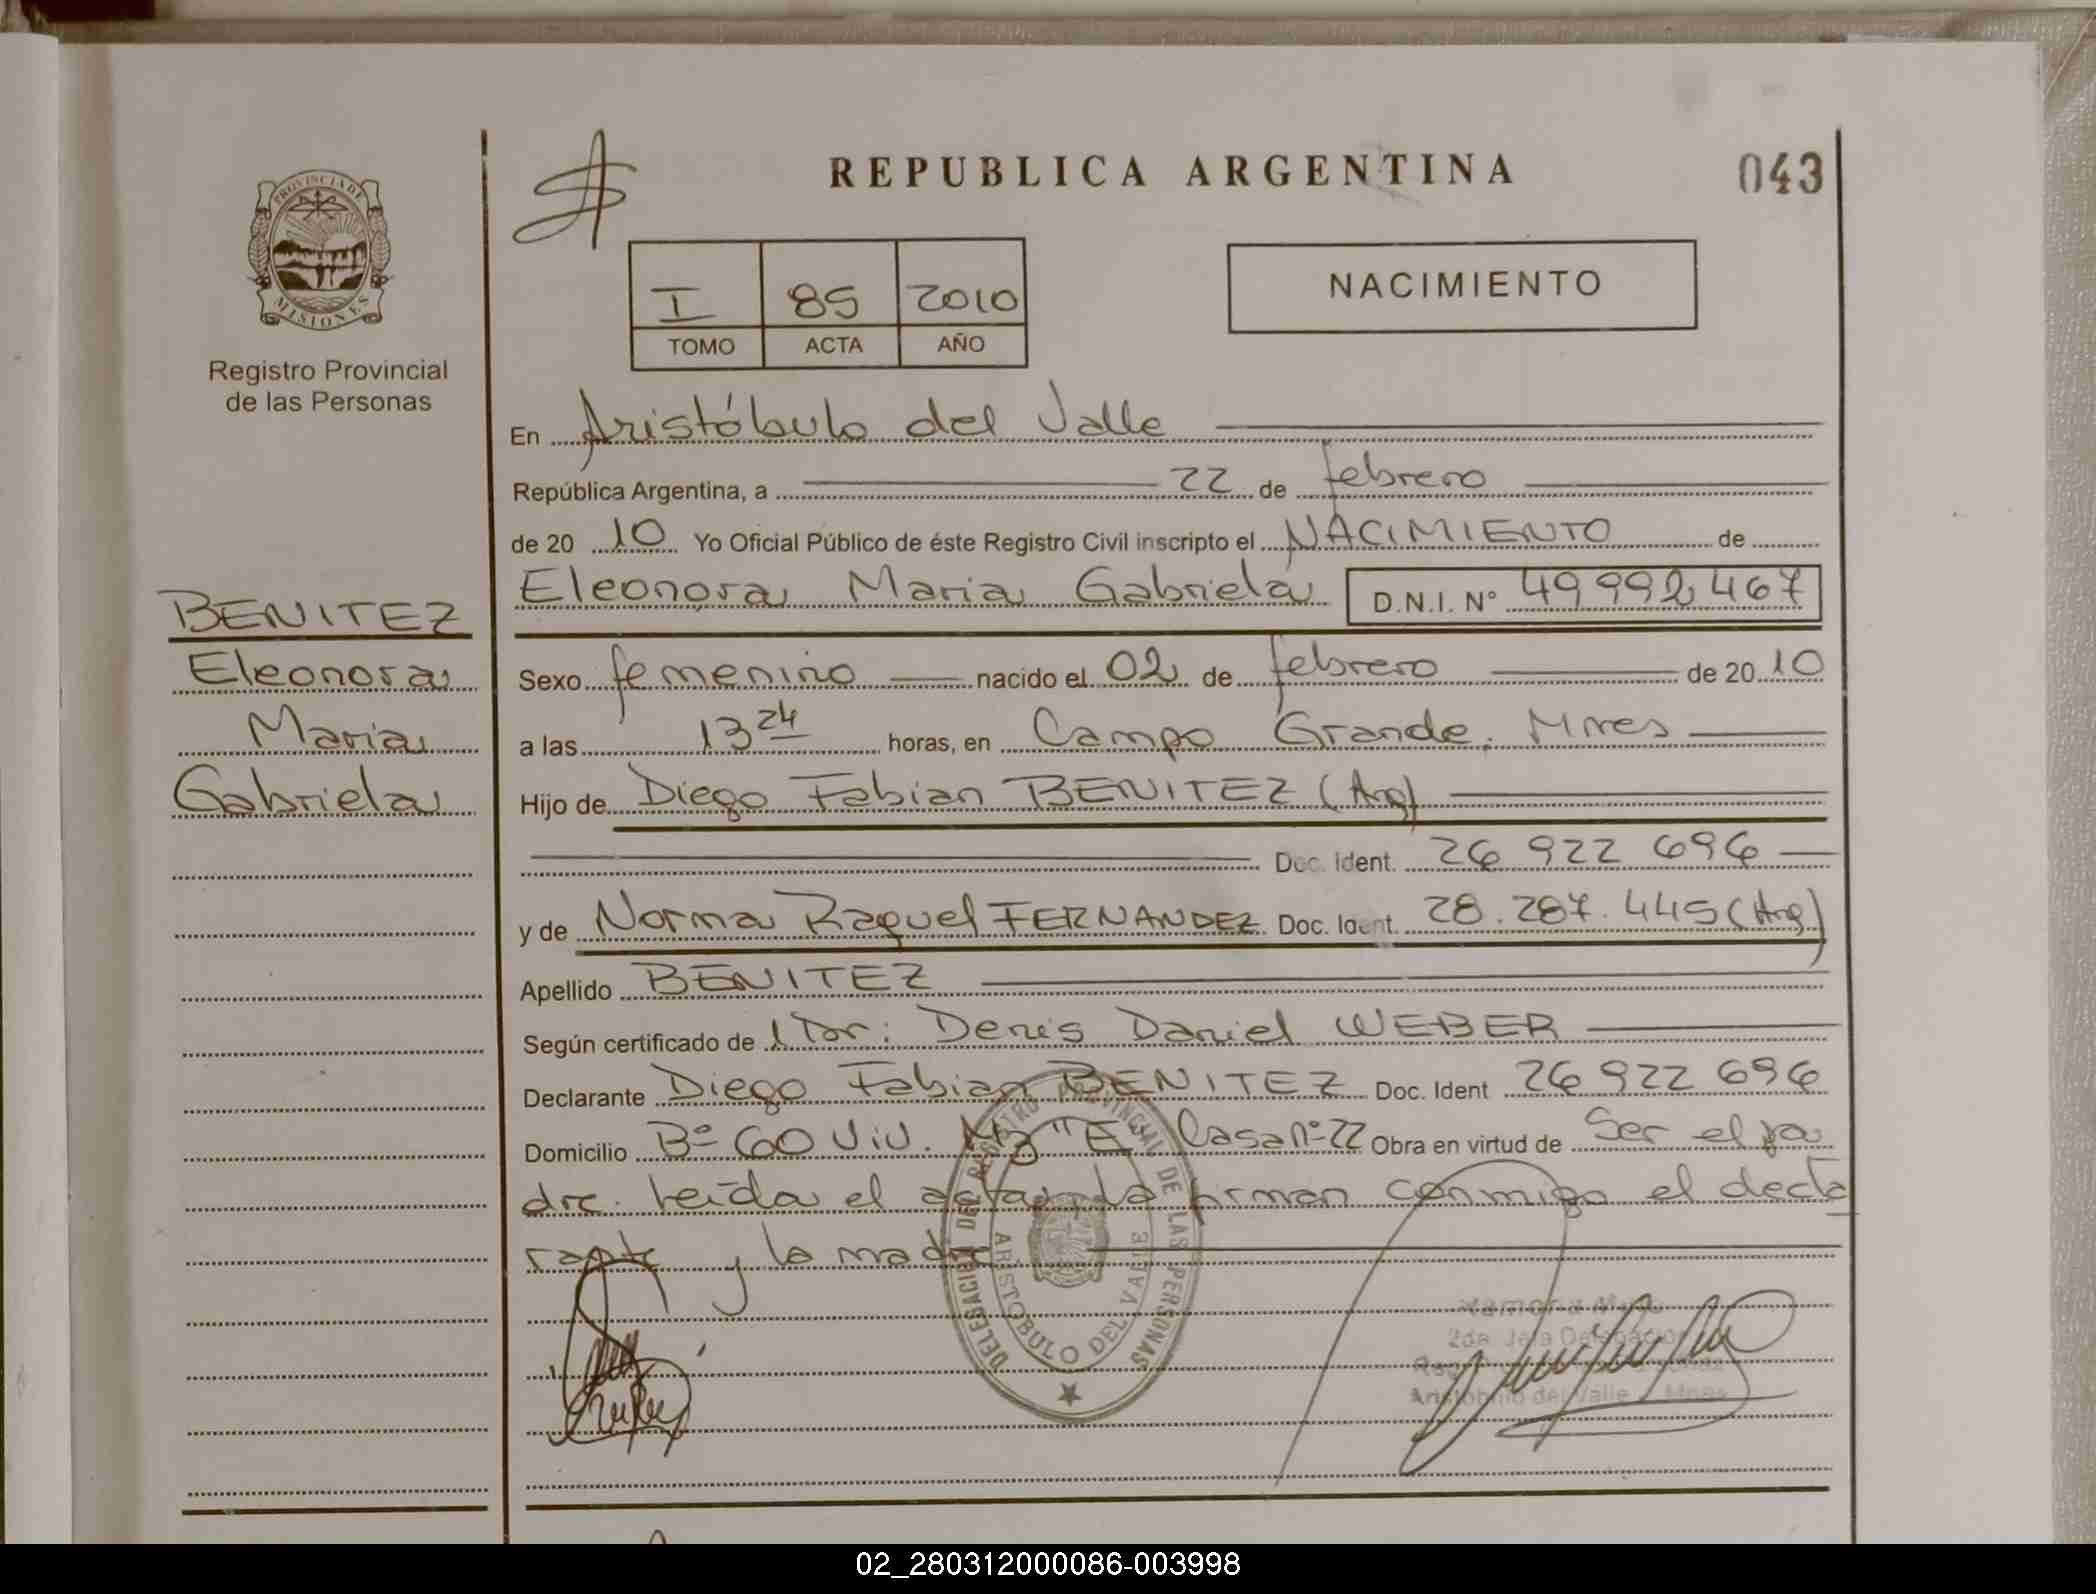 REPUBLICA ARGENTINA
043
PROVINCIA DE
MISIONES
Registro Provincial
de las Personas
I 85 2010
TOMO ACTA AÑO
NACIMIENTO
En Aristóbulo del Valle
República Argentina, a 22 de febrero
de 20 10 Yo Oficial Público de éste Registro Civil inscripto el NACIMIENTO de
Eleonora Maria Gabriela D.N.I. Nº 49 992 467
BENITEZ
Eleonora
Maria
Gabriela
Sexo femenino nacido el 02 de febrero de 20 10
a las 13 24 horas, en Campo Grande. Mnes
Hijo de Diego Fabian BENITEZ (Arg)
Doc. Ident. 26 922 696
y de Norma Raquel FERNANDEZ Doc. Ident. 28.287.445 (Arg)
Apellido BENITEZ
Según certificado de l Dr: Denis Daniel WEBER
Declarante Diego Fabian BENITEZ Doc. Ident 26 922 696
Domicilio Bº 60 Viv. Mz "E" Casa nº 22 Obra en virtud de Ser el pa
dre. Leída el acta, la firman conmigo el decla
rante y la madre
DELEGACION DEL REGISTRO PROVINCIAL DE LAS PERSONAS
ARISTOBULO DEL VALLE
2da. Jefa Delegación
Aristóbulo del Valle - Mnes
02_280312000086-003998